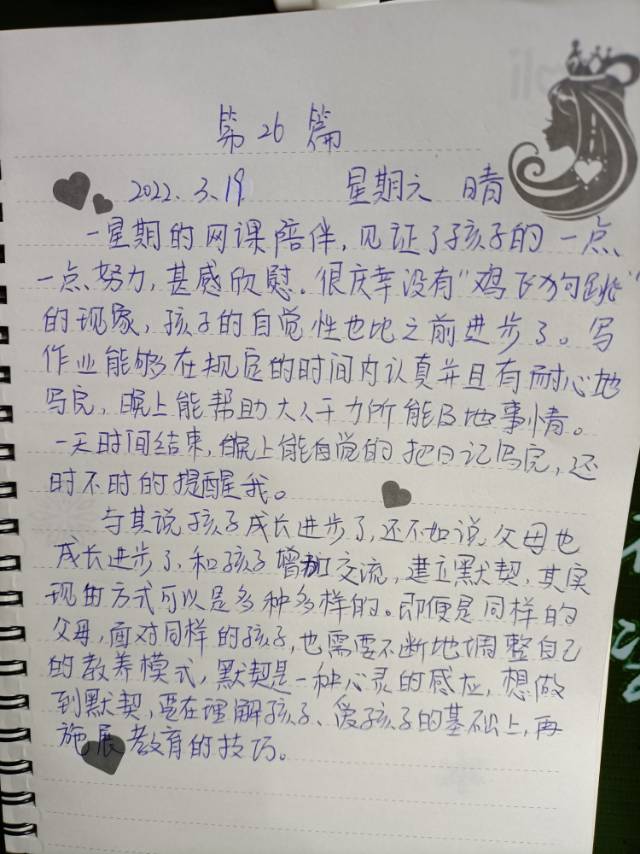 第26篇
2022.3.19 星期六 晴
一星期的网课陪伴,见证了孩子的一点
一点努力,甚感欣慰。很庆幸没有"鸡飞狗跳"
的现象,孩子的自觉性也比之前进步了。写
作业能够在规定的时间内认真并且有耐心地
写完,晚上能帮助大人干力所能及地事情。
一天时间结束,晚上能自觉的把日记写完,还
时不时的提醒我。
与其说孩子成长进步了,还不如说父母也
成长进步了,和孩子增加交流,建立默契,其实
现由方式可以是多种多样的。即便是同样的
父母,面对同样的孩子,也需要不断地调整自己
的教养模式,默契是一种心灵的感应,想做
到默契,要在理解孩子、爱孩子的基础上,再
施展教育的技巧。